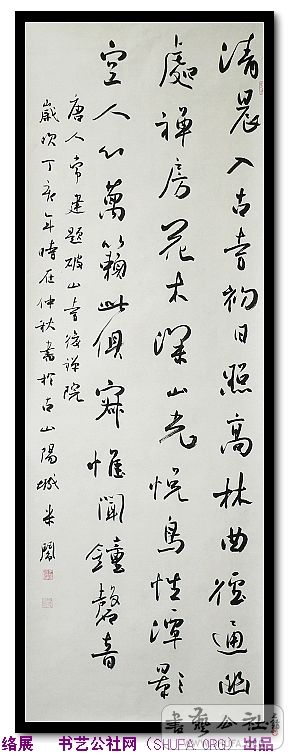 清晨入古寺初日照高林曲徑通幽
處禪房花木深山光悅鳥性潭影
空人心萬籟此俱寂惟聞鐘磬音
唐人常建題破山寺後禪院
歲次丁亥年時在仲秋書於古山陽城米
書藝公社
络展 书艺公社网（SHUFA.ORG）出品